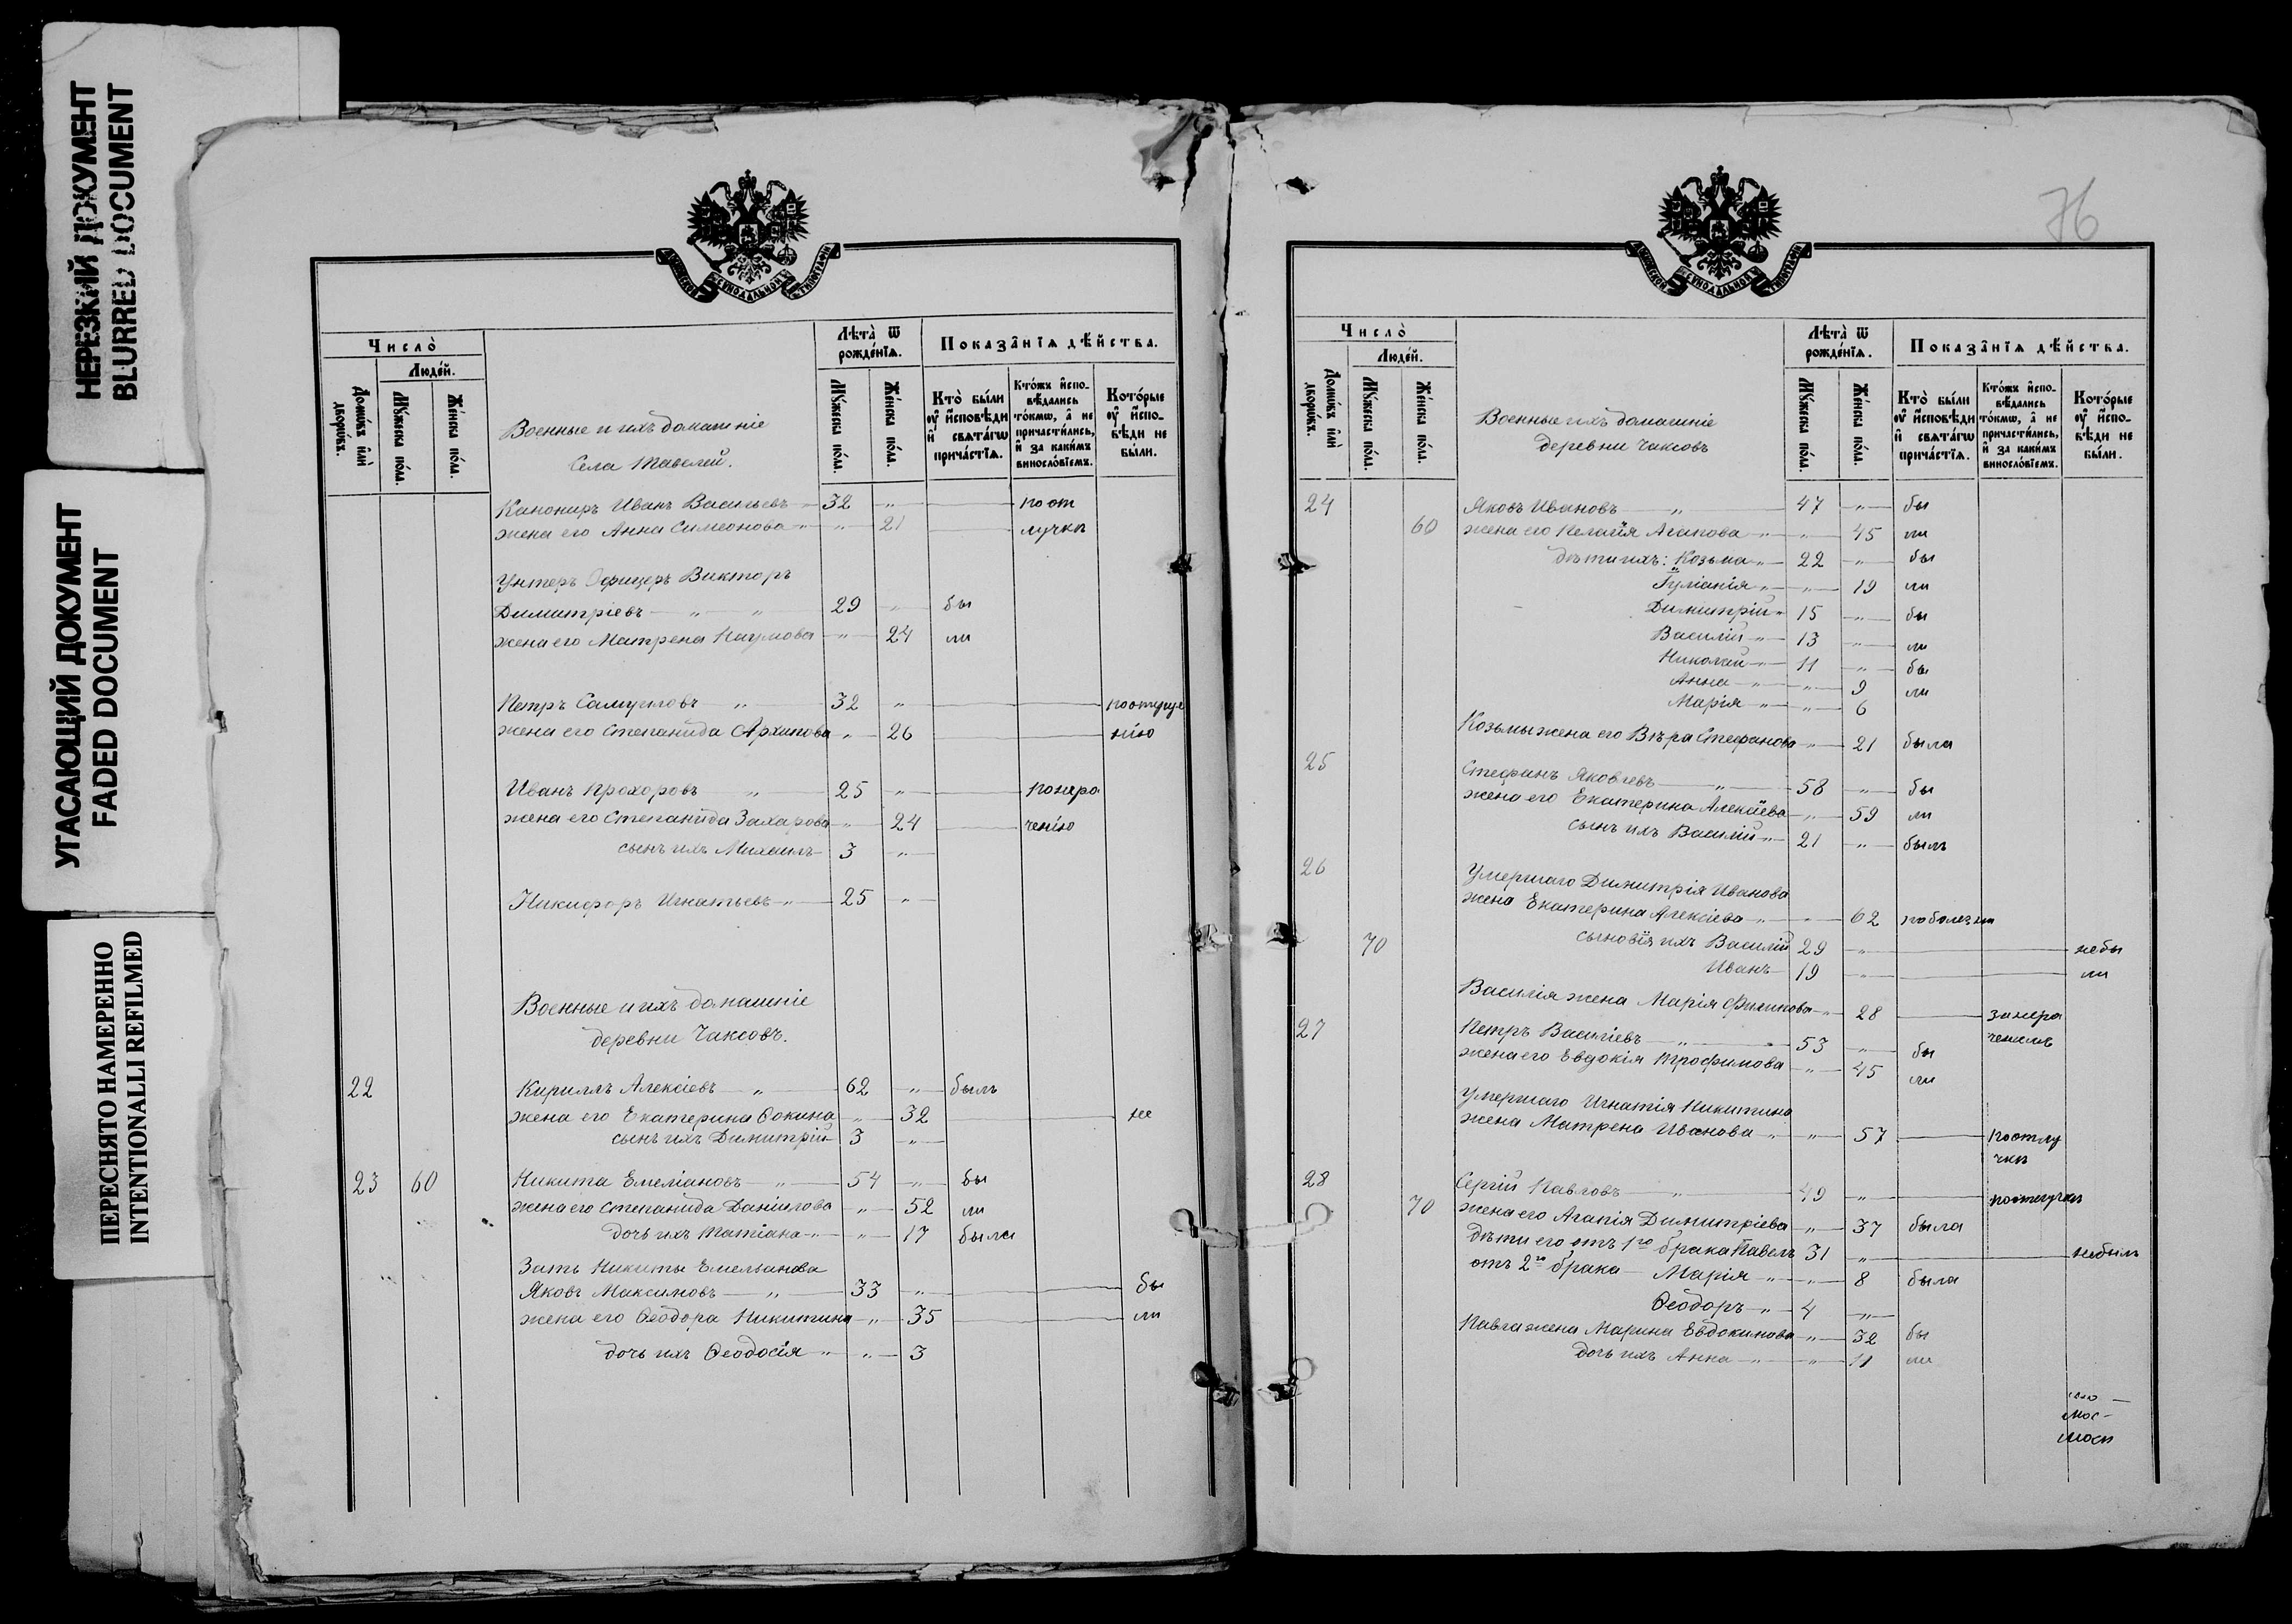 НЕРЕЗКИЙ ДОКУМЕНТ
BLURRED DOCUMENT
УГАСАЮЩИЙ ДОКУМЕНТ
FADED DOCUMENT
ПЕРЕСНЯТО НАМЕРЕННО
INTENTIONALLI REFILMED
СѴНОДАЛЬНОЙ ТИПОГРАФІИ
Число̀
Людéй.
Домѡ́въ и҆лѝ дворѡ́въ.
Мꙋ́жеска по́ла.
Же́нска по́ла.
Военные и ихъ домашніе
села Тавелей.
Лѣта̀ ѿ рожде́нїѧ.
Мꙋ́жеска по́ла.
Же́нска по́ла.
Показа̑нїѧ дѣ́йства.
Кто̀ бы́ли ᲂу҆ и҆сповѣди и҆ свѧта́гѡ прича́стїѧ.
Кто́жъ и҆спо-вѣдались то́кмѡ, а҆ не причасти́лись, и҆ за каки́мъ винословїемъ.
Кото́рые ᲂу҆ и҆спо-вѣди не бы́ли.
Канониръ Иванъ Васильевъ 32 „ по от
жена его Анна Симеонова „ „ 21 лучкѣ
Унтеръ Офицеръ Викторъ
Димитріевъ „ „ 29 „ бы
жена его Матрена Наумова „ 24 ли
Петръ Самуиловъ „ 32 „
жена его Степанида Архипова „ 26 нію
Иванъ Прохоровъ „ 25 „ понера
жена его Степанида Захарова „ 24 ченію
сынъ ихъ Михаилъ 3 „
Никифоръ Игнатьевъ „ 25 „
Военные и ихъ домашніе
деревни Чаксовъ.
22 Кириллъ Алексіевъ „ 62 „ былъ
жена его Екатерина Ѳокина „ 32 не
сынъ ихъ Димитрій 3 „
23 60 Никита Емеліановъ „ 54 „ бы
жена его Степанида Даніилова „ 52 ли
дочь ихъ Татіана „ „ 17 была
Зять Никиты Емельянова
Яковъ Максимовъ „ 33 „ бы
жена его Ѳеодора Никитина „ 35 ли
дочь ихъ Ѳеодосія „ „ 3
76
СѴНОДАЛЬНОЙ ТИПОГРАФІИ
Число̀
Людéй.
Домѡ́въ и҆лѝ дворѡ́въ.
Мꙋ́жеска по́ла.
Же́нска по́ла.
Военные ихъ домашніе
деревни Чаксовъ
Лѣта̀ ѿ рожде́нїѧ.
Мꙋ́жеска по́ла.
Же́нска по́ла.
Показа̑нїѧ дѣ́йства.
Кто̀ бы́ли ᲂу҆ и҆сповѣди и҆ свѧта́гѡ прича́стїѧ.
Кто́жъ и҆спо-вѣдались то́кмѡ, а҆ не причасти́лись, и҆ за каки́мъ винословїемъ.
Кото́рые ᲂу҆ и҆спо-вѣди не бы́ли.
24 Яковъ Ивановъ „ 47 „ бы
60 жена его Пелагія Агапова „ „ 45 ли
дѣти ихъ: Козьма „ 22 „ бы
Іуліанія „ „ 19 ли
Димитрій „ 15 „ бы
Василій „ 13 „ ли
Николай „ 11 „ бы
Анна „ „ 9 ли
Марія „ „ 6
Козьмы жена его Вѣра Стефанова „ 21 была
25 Стефанъ Яковлевъ „ 58 „ бы
жена его Екатерина Алексіева „ 59 ли
сынъ ихъ Василій „ 21 „ былъ
26 Умершаго Димитрія Иванова
жена Екатерина Алексіева „ „ 62 по болезни
70 сыновія ихъ Василій 29 „ небы
Иванъ 19 „ ли
Василія жена Марія Филипова „ 28 за нера
ченіемъ
27 Петръ Василіевъ „ 53 „ бы
жена его Евдокія Трофимова „ 45 ли
Умершаго Игнатія Никитина
жена Матрена Иванова „ „ 57 поотлу
чкѣ
28 Сергій Павловъ „ 49 „ поотлучкѣ
70 жена его Агапія Димитріева „ 37 была
дѣти его отъ 1го брака Павелъ 31 „ небылъ
отъ 2го брака Марія „ „ 8 была
Ѳеодоръ „ 4 „
Павла жена Марина Евдокимова „ 32 бы
дочь ихъ Анна „ „ 11 ли